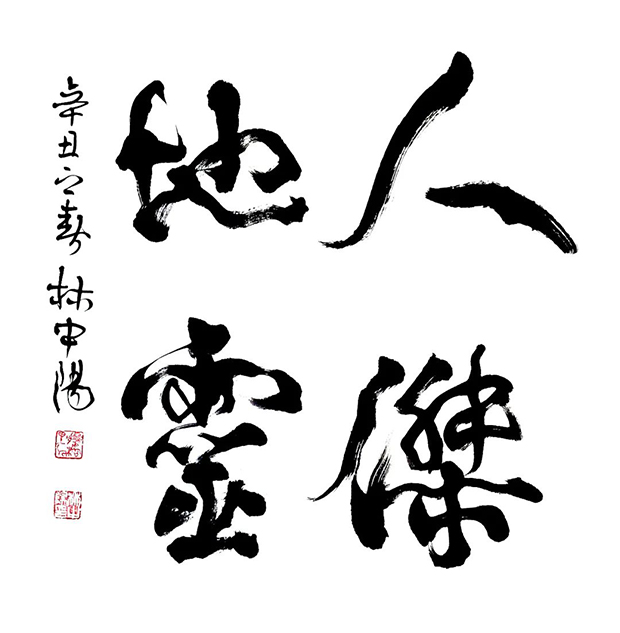 人傑
地靈
辛丑之春林中陽